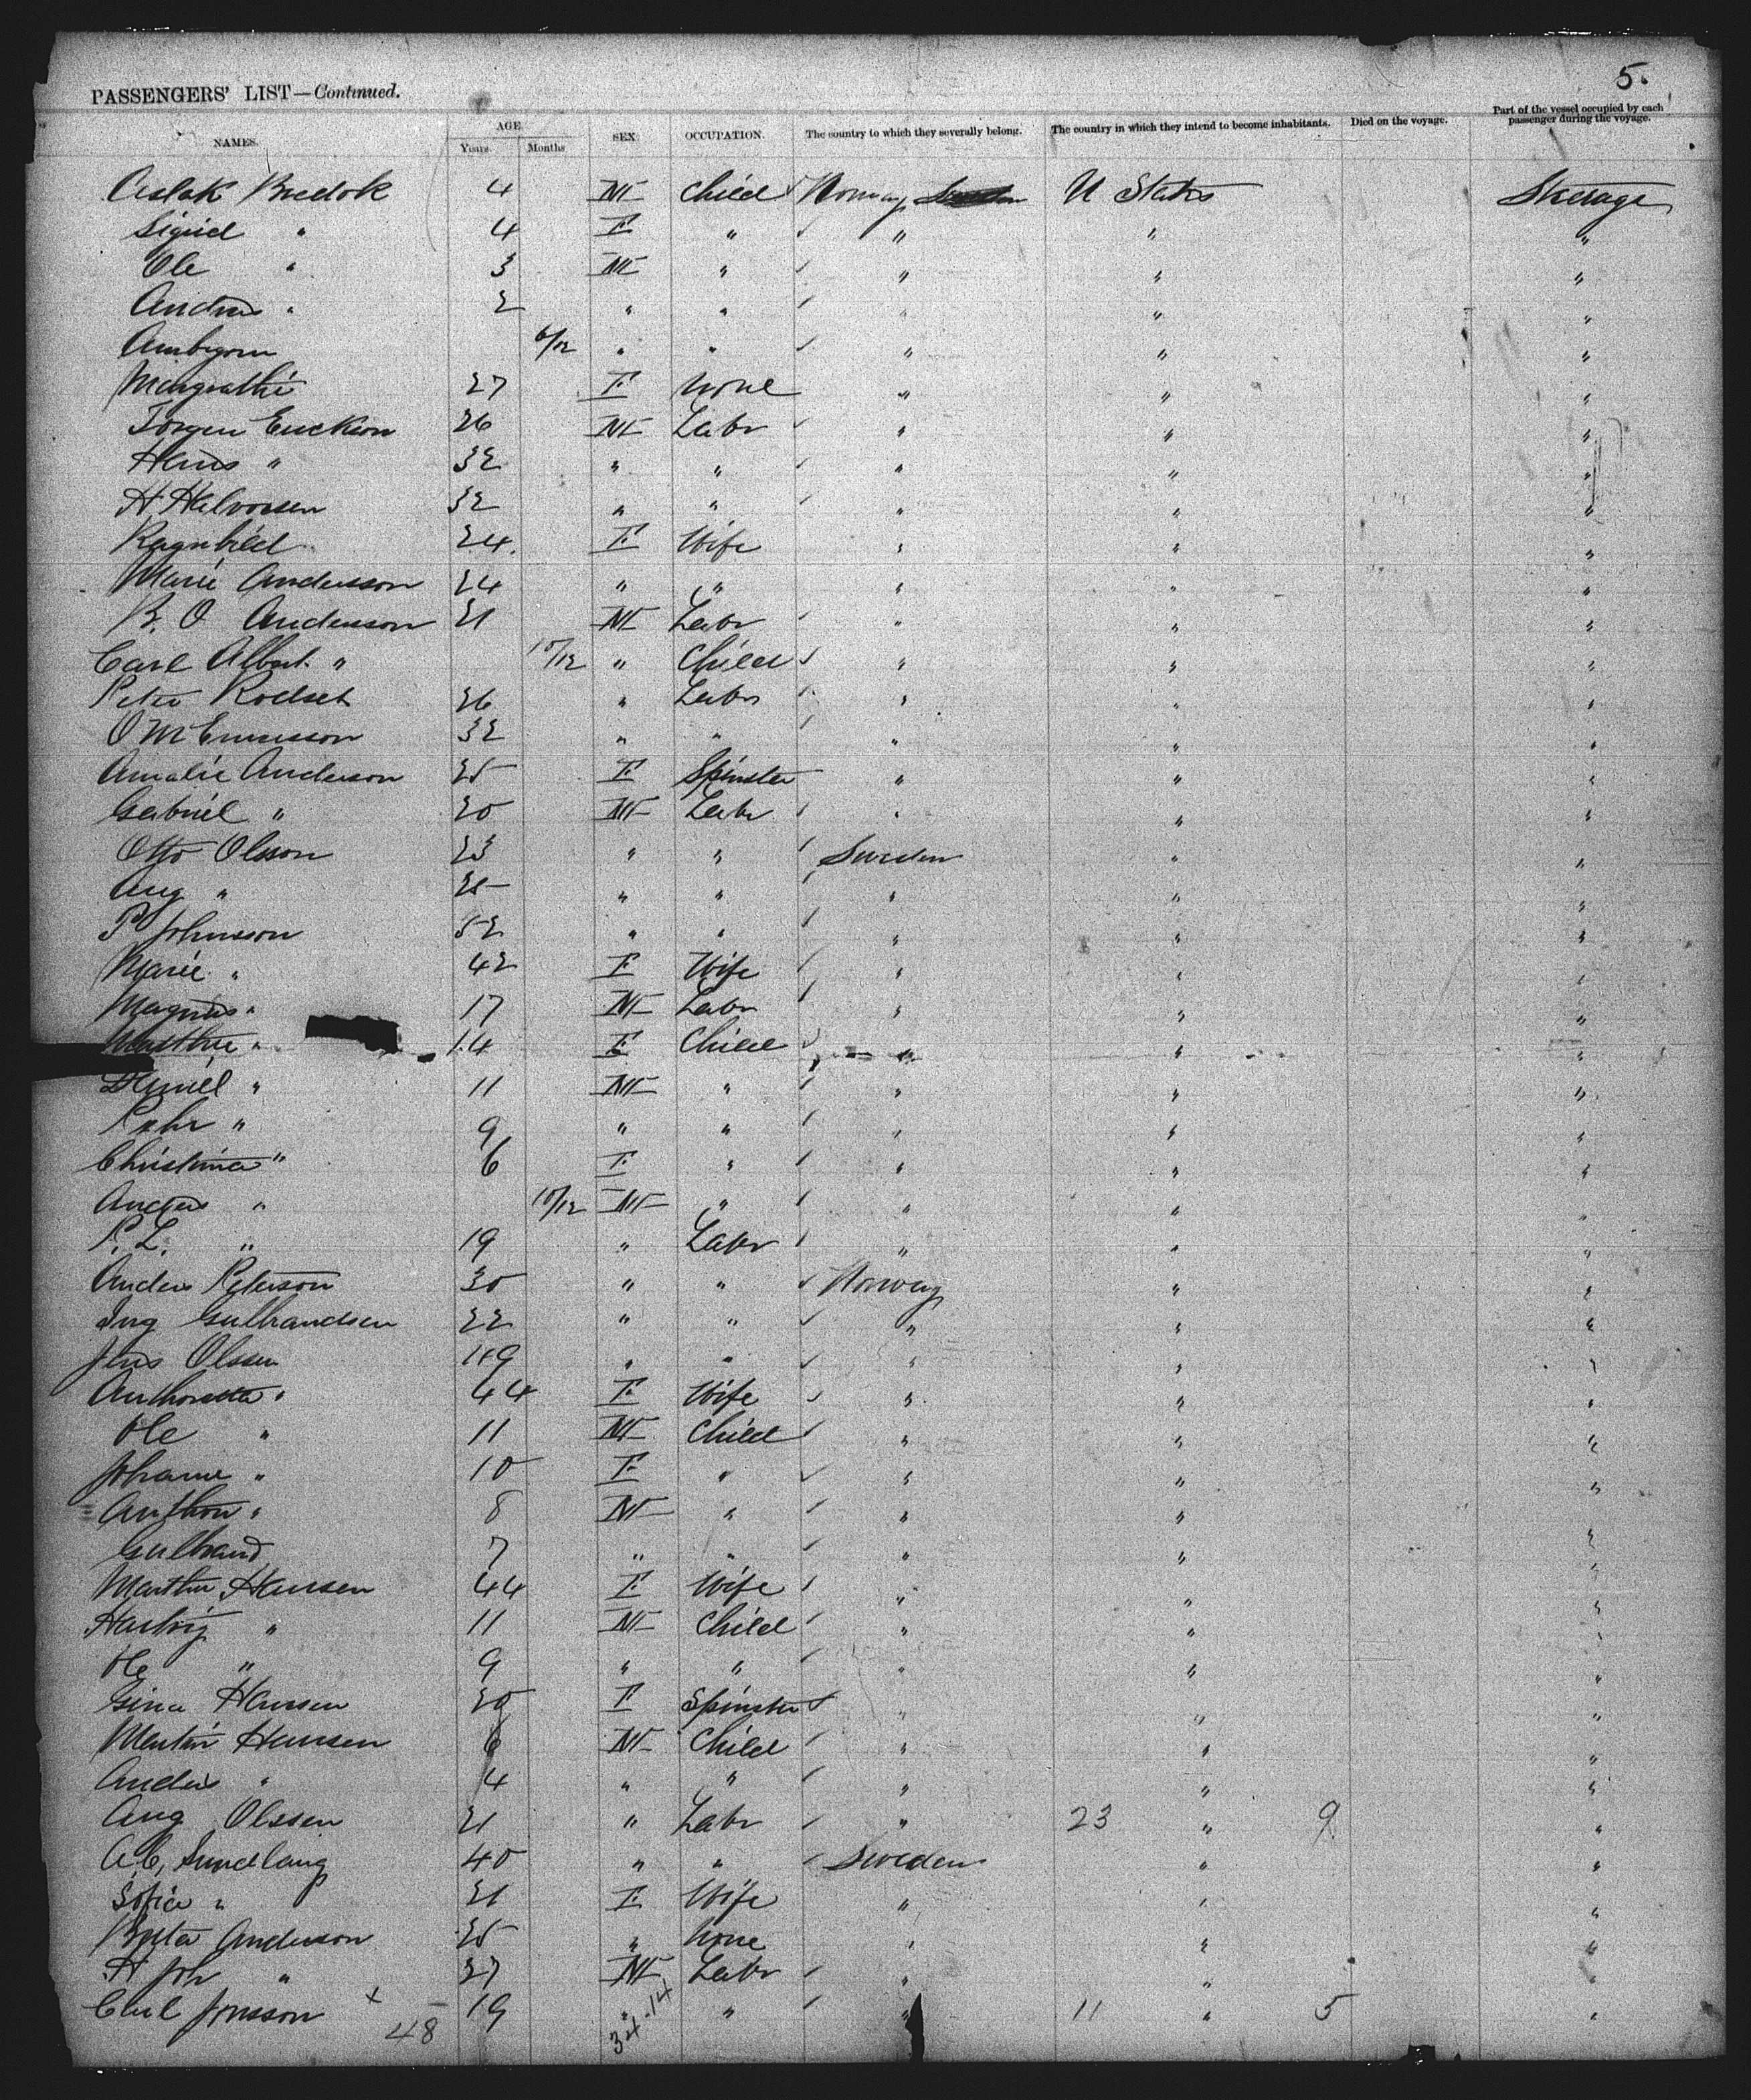 5.
PASSENGERS' LIST—Continued.
NAMES. AGE. Years. Months SEX. OCCUPATION. The country to which they severally belong. The country in which they intend to become inhabitants. Died on the voyage. Part of the vessel occupied by each passenger during the voyage.
Aslak Bredok 4 M Child Norway U States Steerage
Sigrid " 4 F " " " "
Ole " 3 M " " " "
Andras " 2 " " " " "
6/12 " " " " "
Margrathe 27 F None " " "
Jorgen Erickson 26 M Labr " " "
Hans " 32 " " " " "
H Halvorsen 32 " " " " "
Ragnhild 24. F Wife " " "
Marie Andersson 24 " " " " "
B. O Andersson 21 M Labr " " "
Carl Albert " 10/12 " Child " " "
Peter Rodset 26 " Labr " " "
O M 32 " " " " "
Amalie Anderson 25 F Spinster " " "
Gabriel " 20 M Labr " " "
Otto Olsson 23 " " Sweden " "
Aug " 25 " " " " "
P Johnsson 52 " " " " "
Marie " 42 F Wife " " "
Magnus " 17 M Labr " " "
Marthe " 14 F Child " " "
" 11 M " " " "
Pehr " 9 " " " " "
Christina " 6 F " " " "
Anders " 10/12 M " " " "
P. L. " 19 " Labr " " "
Anders Peterson 30 " " Norway " "
Ing Gulbrandsen 22 " " " " "
Jens Olssen 49 " " " " "
Anthonette " 44 F Wife " " "
Ole " 11 M Child " " "
Johanne " 10 F " " " "
Anthon " 8 M " " " "
Gulbrand 7 " " " " "
Marthe Hansen 44 F Wife " " "
Hartvig " 11 M Child " " "
Ole " 9 " " " " "
Gina Hansen 20 F Spinster " " "
Martin Hansen 6 M Child " " "
Anders " 4 " " " " "
Aug Olssen 21 " Labr " 23 " 9 "
A. C. Sundlang 40 " " Sweden " "
Sofia " 21 F Wife " " "
Brita Anderson 25 " None " " "
A Joh " 27 M Labr " " "
Carl Jonsson x 19 " " " 11 " 5 "
48 34.14